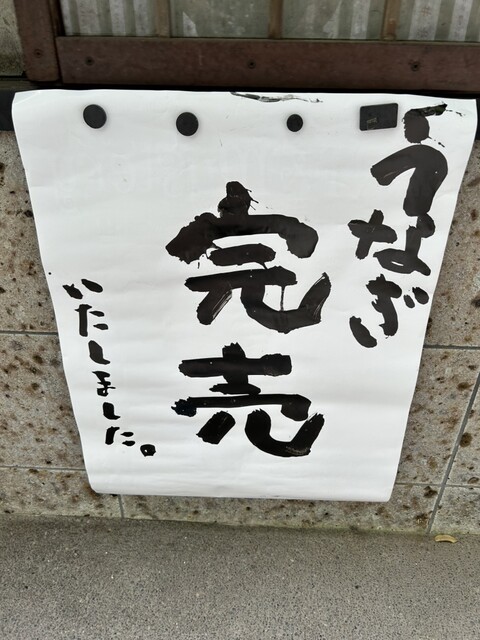 うなぎ
完売
いたしました。